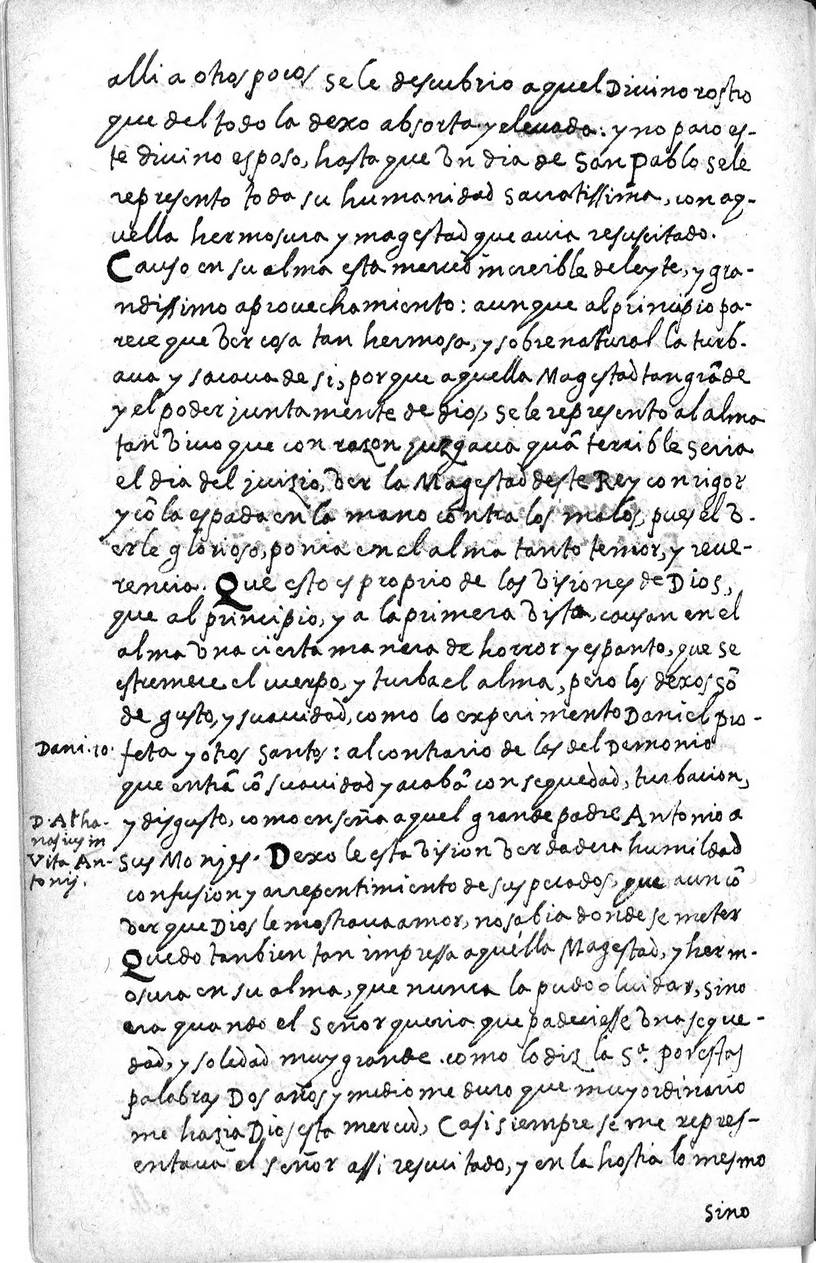 alli a otros pocos se le descubrio aquel Divino rostro
que del todo la dexo absorta y elevada: y no paro es-
te divino esposo, hasta que Vn dia de San Pablo se le
represento toda su humanidad sacratissima, con aq-
uella hermosura y magestad que avia resuscitado.
Causo en su alma esta merced increible deleyte, y gra-
ndissimo aprovechamiento: aunque al principio pa-
rece que Ver cosa tan hermosa, y sobrenatural la turb-
ava y sacava de si, porque aquella Magestad tan grāde
y el poder juntamente de dios, se le represento al alma
tan Vivo que con razon juzgava quā terrible seria
el dia del juizio, Ver la Magestad deste Rey con rigor
y cō la espada en la mano contra los malos, pues el V-
erle glorioso, ponia en el alma tanto temor, y reve-
rencia. Que esto es proprio de las Visiones de Dios,
que al principio, y a la primera Vista, causan en el
alma Vna cierta manera de horror y espanto, que se
estremece el cuerpo, y turba el alma, pero los dexos sō
de gusto, y suavidad, como lo experimento Daniel pro-
Dani. 10. feta y otros Santos: al contrario de las del Demonio
que entrā cō suavidad y acabā con sequedad, turbacion,
D. Atha- y disgusto, como enseña aquel grande padre Antonio a
nasius in
Vita An- sus Monjes. Dexole esta Vision Verdadera humildad
tonij. confusion y arrepentimiento de sus pecados, que aun cō
Ver que Dios le mostrava amor, no sabia donde se meter
Quedo tanbien tan impressa aquella Magestad, y herm-
osura en su alma, que nunca la pudo olvidar, sino
era quando el Señor queria que padeciesse Vna seque-
dad, y soledad muy grande. como lo diz la Sª. por estas
palabras Dos años y medio me duro que muy ordinario
me hazia Dios esta merced, Casi siempre se me repres-
entava el señor assi resucitado, y en la hostia lo mesmo
sino